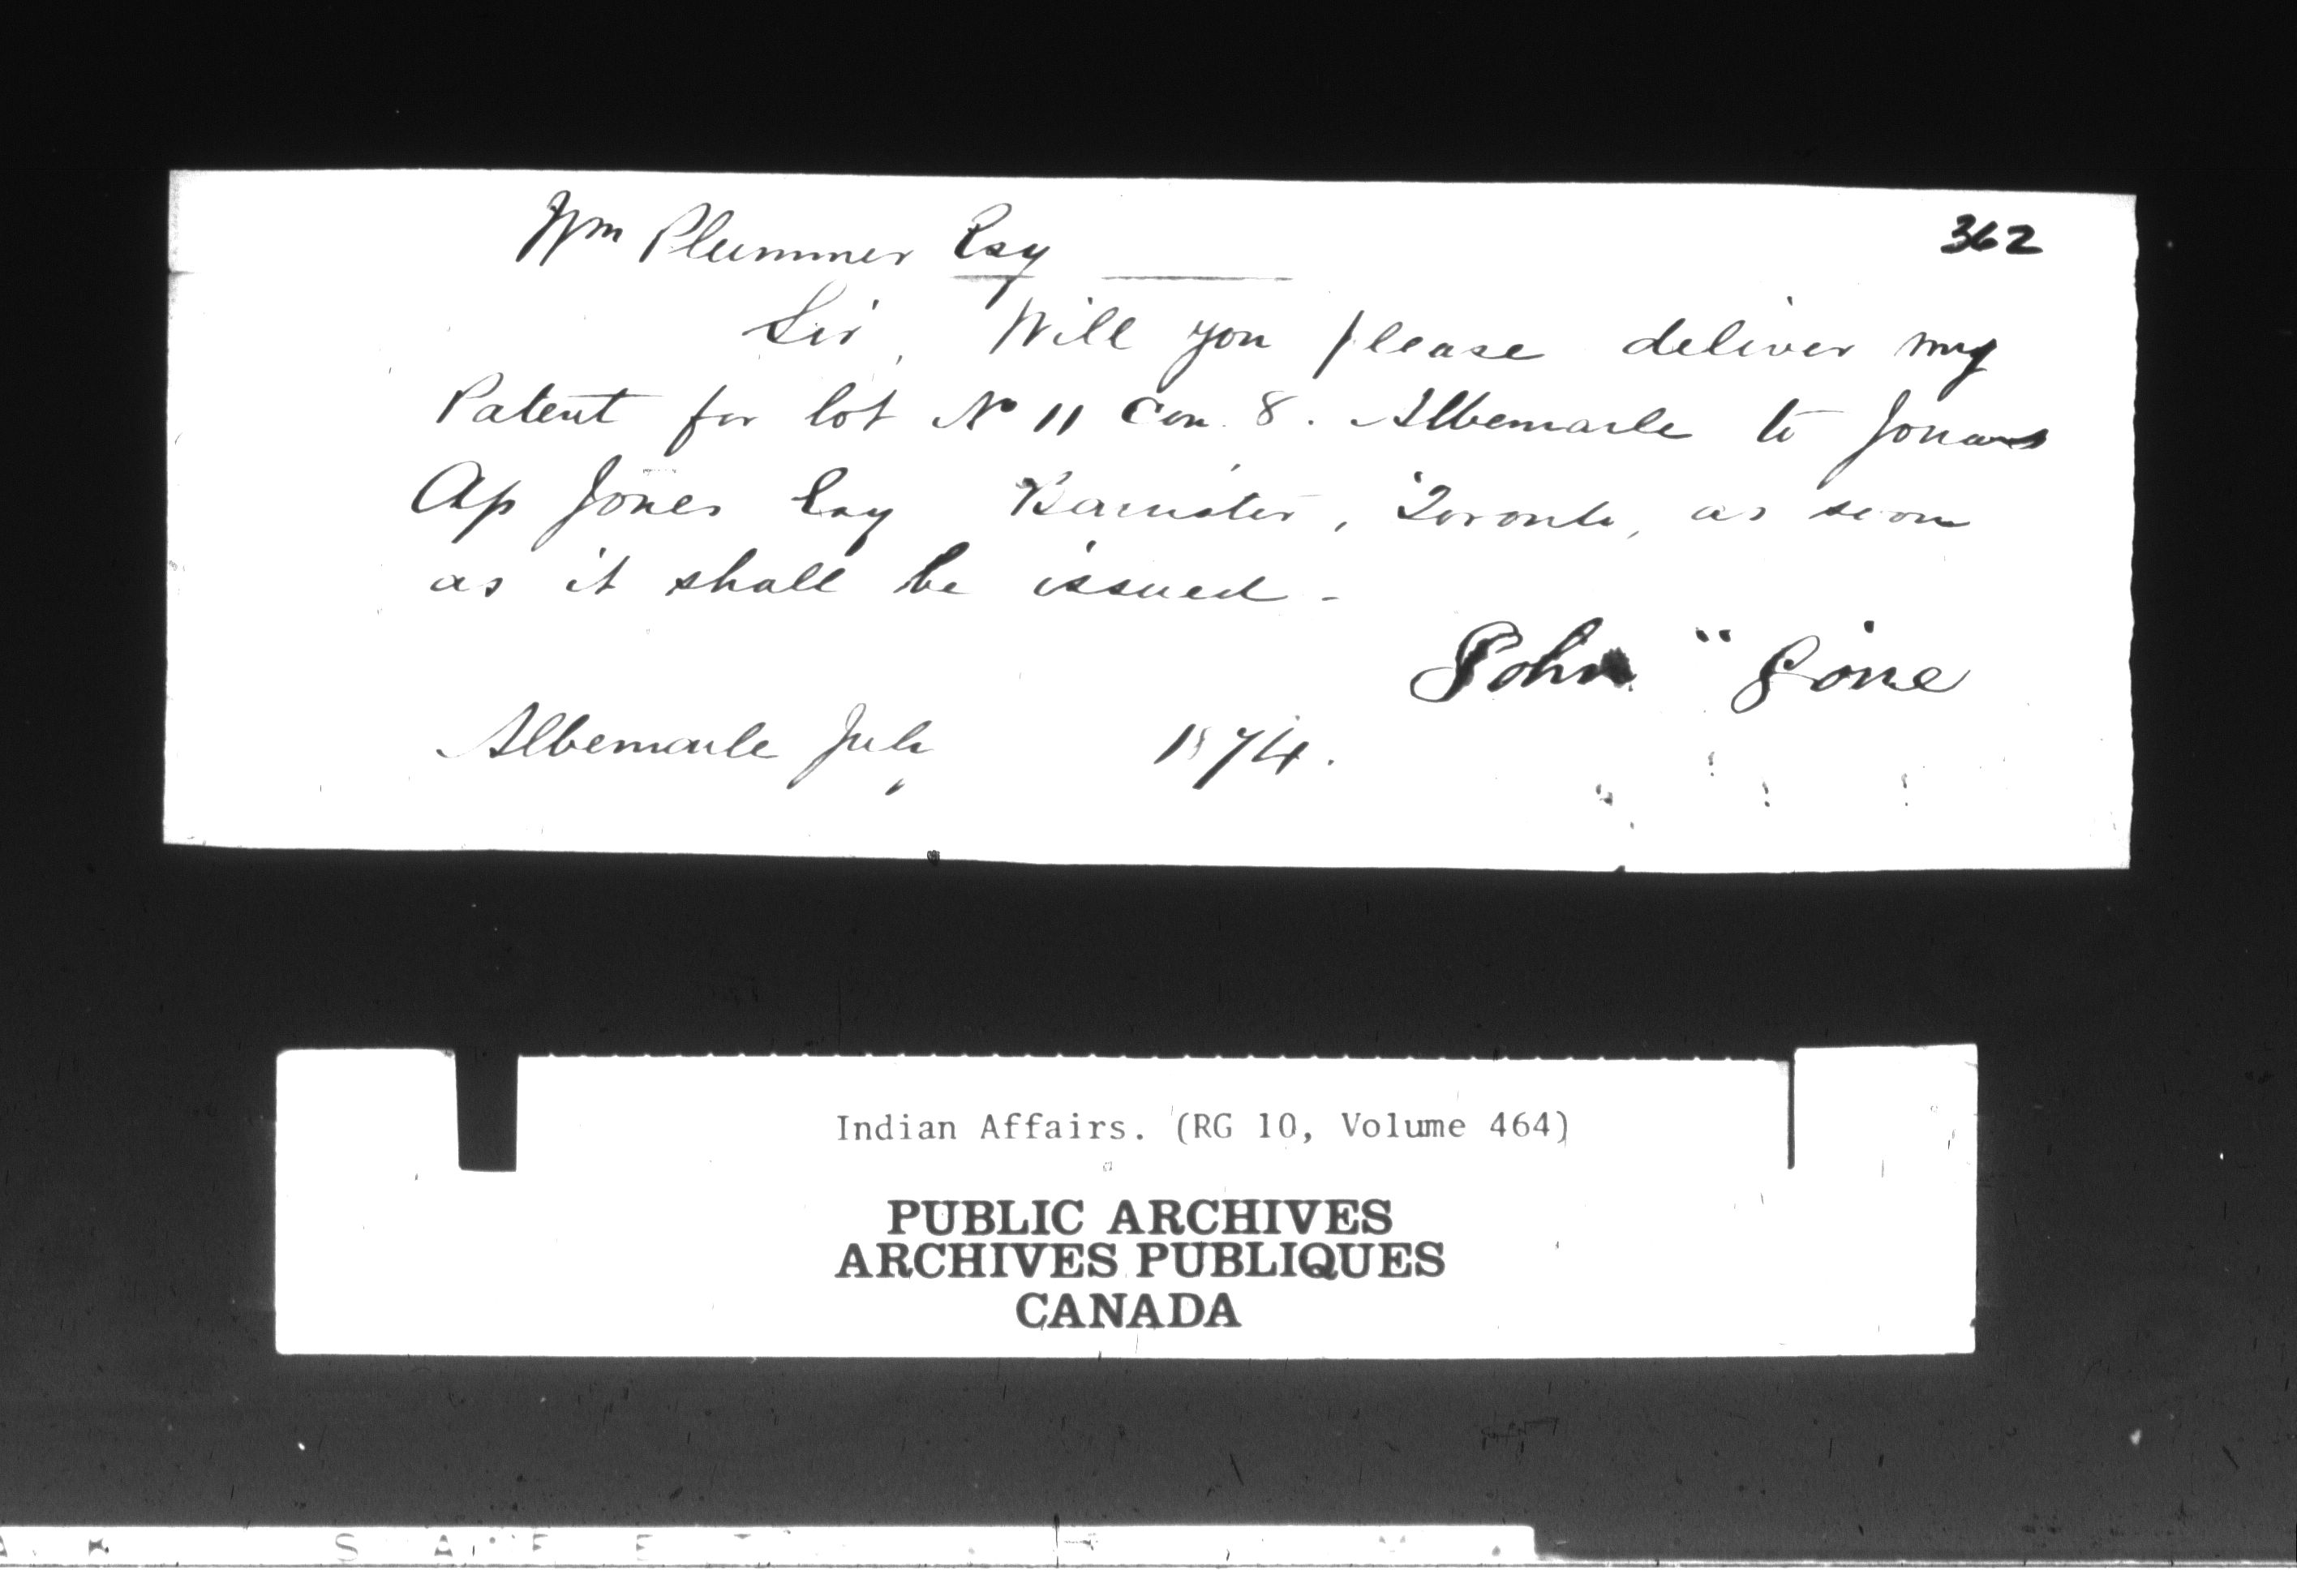 362
Wm Plummer Esq
Sir, Will you please deliver my
Patent for lot No 11 Con. 8. Albemarle to Jonas
Ap Jones Esq Barrister, Toronto, as soon
as it shall be issued -
John "
Albemarle July 1874.
Indian Affairs. (RG 10, Volume 464)
PUBLIC ARCHIVES
ARCHIVES PUBLIQUES
CANADA